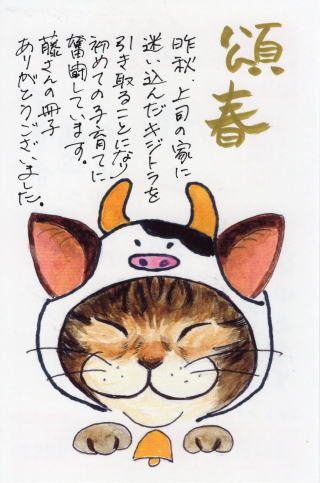 頌春
昨秋、上司の家に
迷い込んだキジトラを
引き取ることになり
初めての子育てに
奮闘しています。
藤さんの冊子
ありがとうございました。